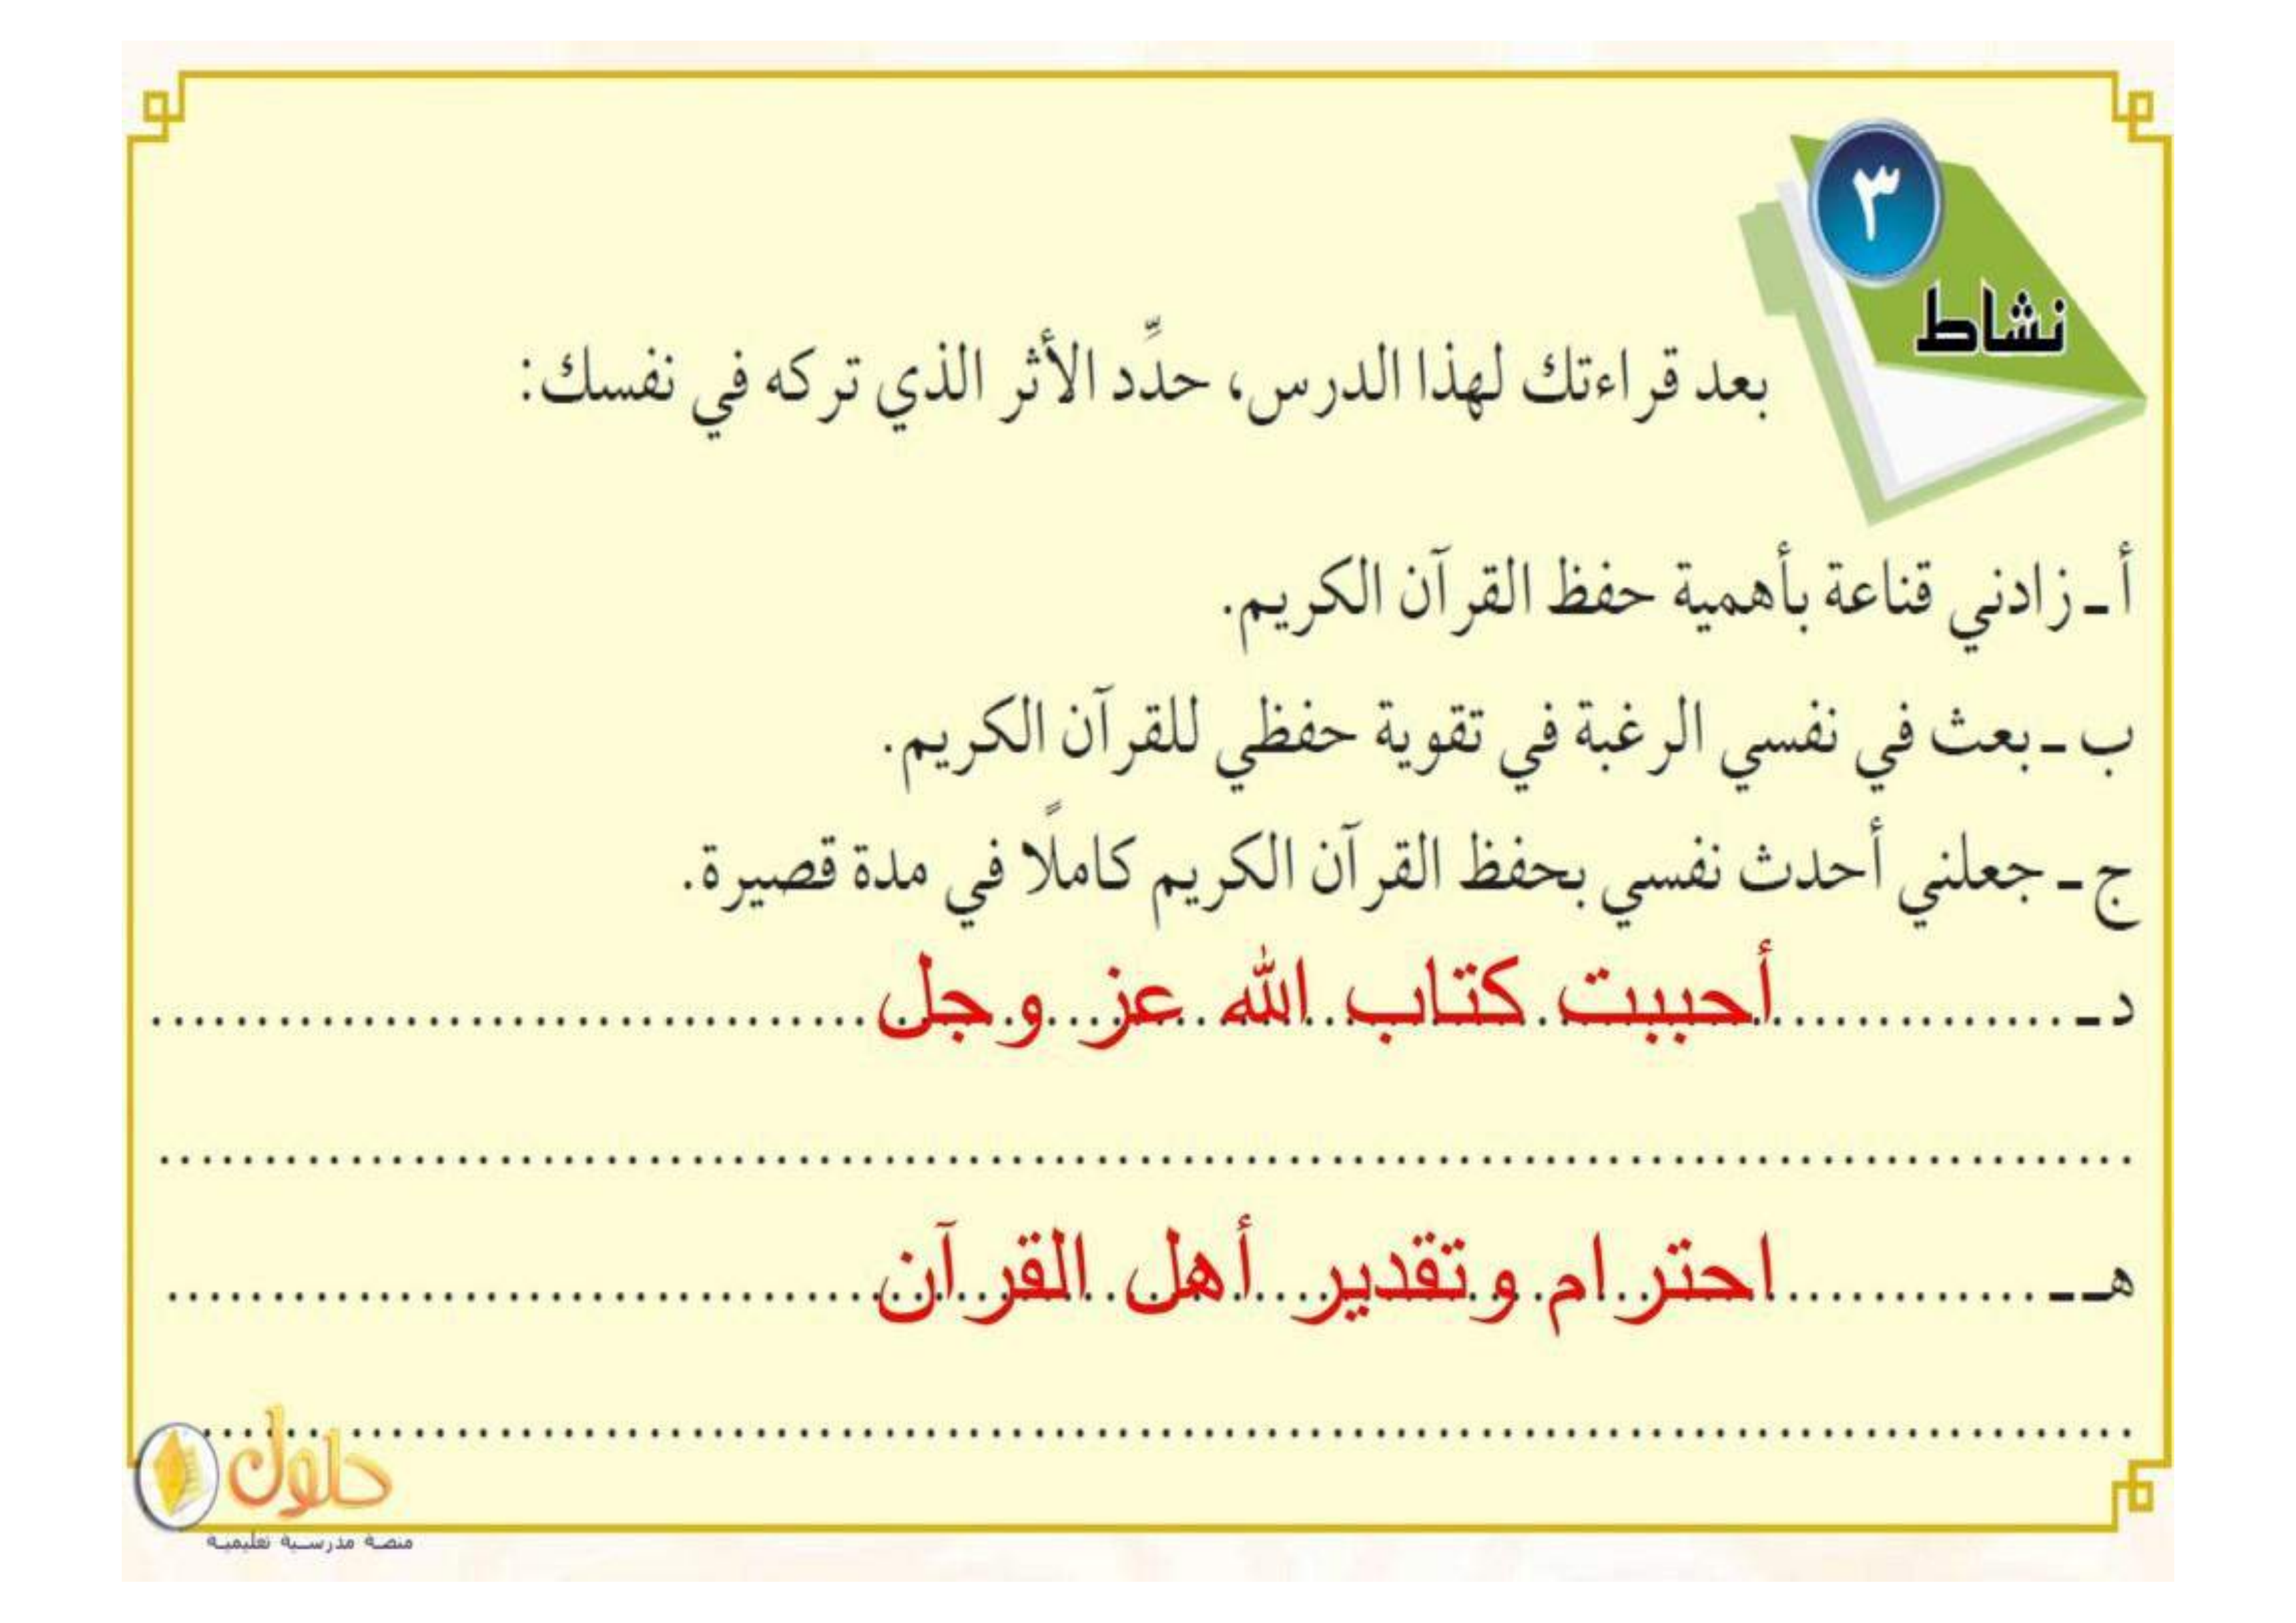 ٣
نشاط
بعد قراءتك لهذا الدرس، حدِّد الأثر الذي تركه في نفسك:
أ ـ زادني قناعة بأهمية حفظ القرآن الكريم.
ب ـ بعث في نفسي الرغبة في تقوية حفظي للقرآن الكريم.
ج ـ جعلني أحدث نفسي بحفظ القرآن الكريم كاملًا في مدة قصيرة.
د ـ أحببت كتاب الله عز وجل
هـ ـ احترام وتقدير أهل القرآن
حلول
منصة مدرسية تعليمية